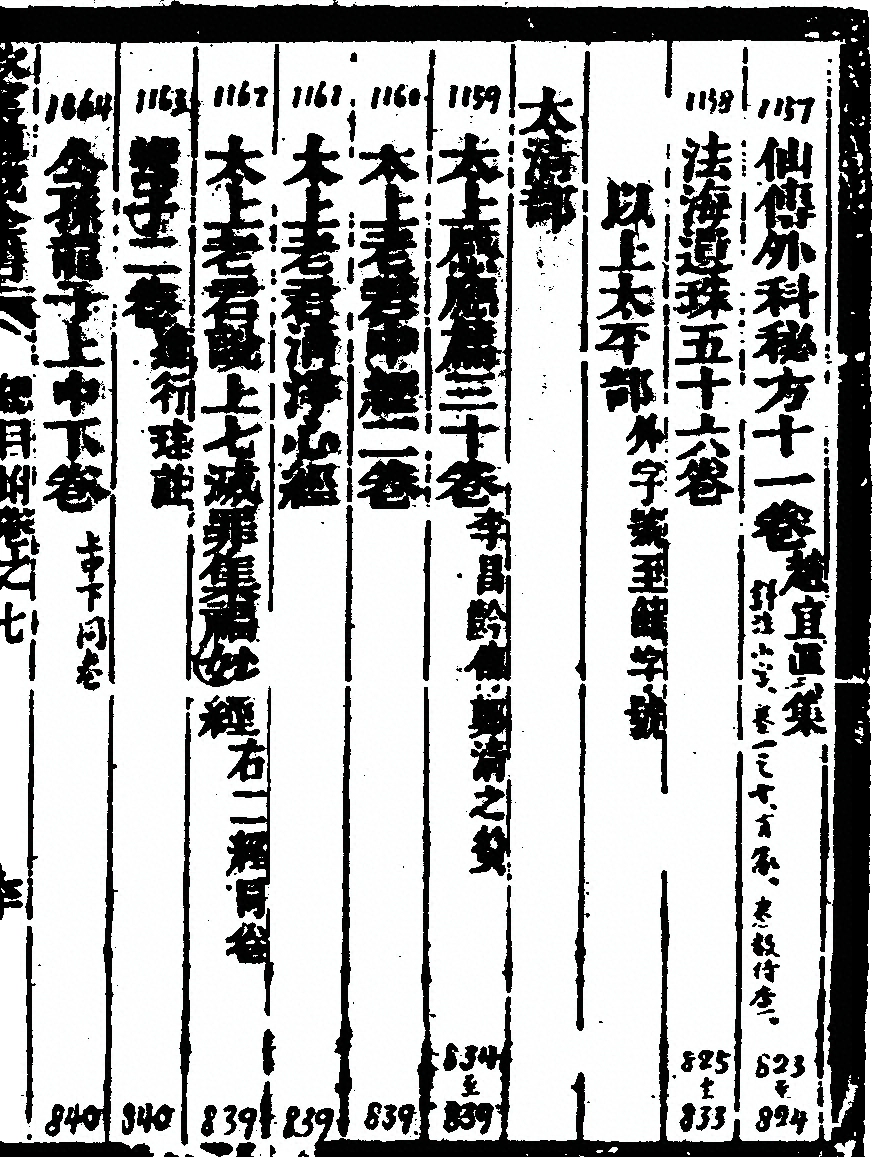 1157
仙傳外科秘方十一卷 趙宜真集
823
至
824
1158
法海遺珠五十六卷
825
至
833
以上太平部 外字號至 字號
太清部
1159
太上感應篇三十卷 李昌齡傳 鄭清之贊
834
至
839
1160
太上老君中經二卷
839
1161
太上老君清淨心經
839
1162
太上老君說上七滅罪集福妙經 右二經同卷
839
1163
鬻子二卷 逢行珪註
840
1164
公孫龍子上中下卷 上中下同卷
840
經目 卷之七